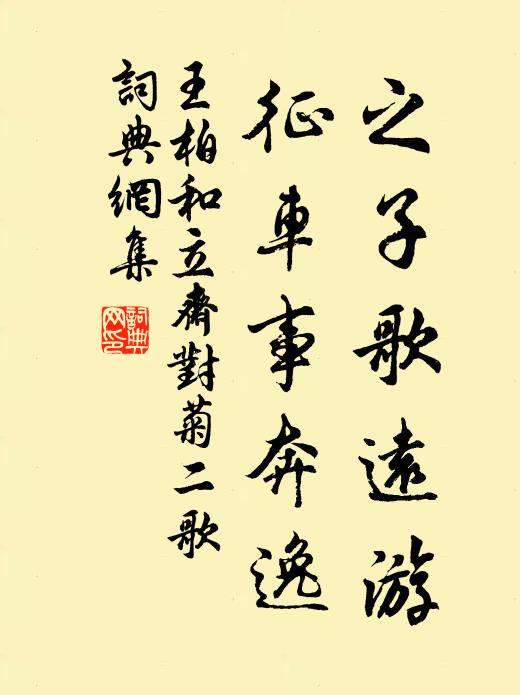 之子歌遠游
征車事奔逸
王柏和立齋對菊二歌
詞典網集
詞典网印